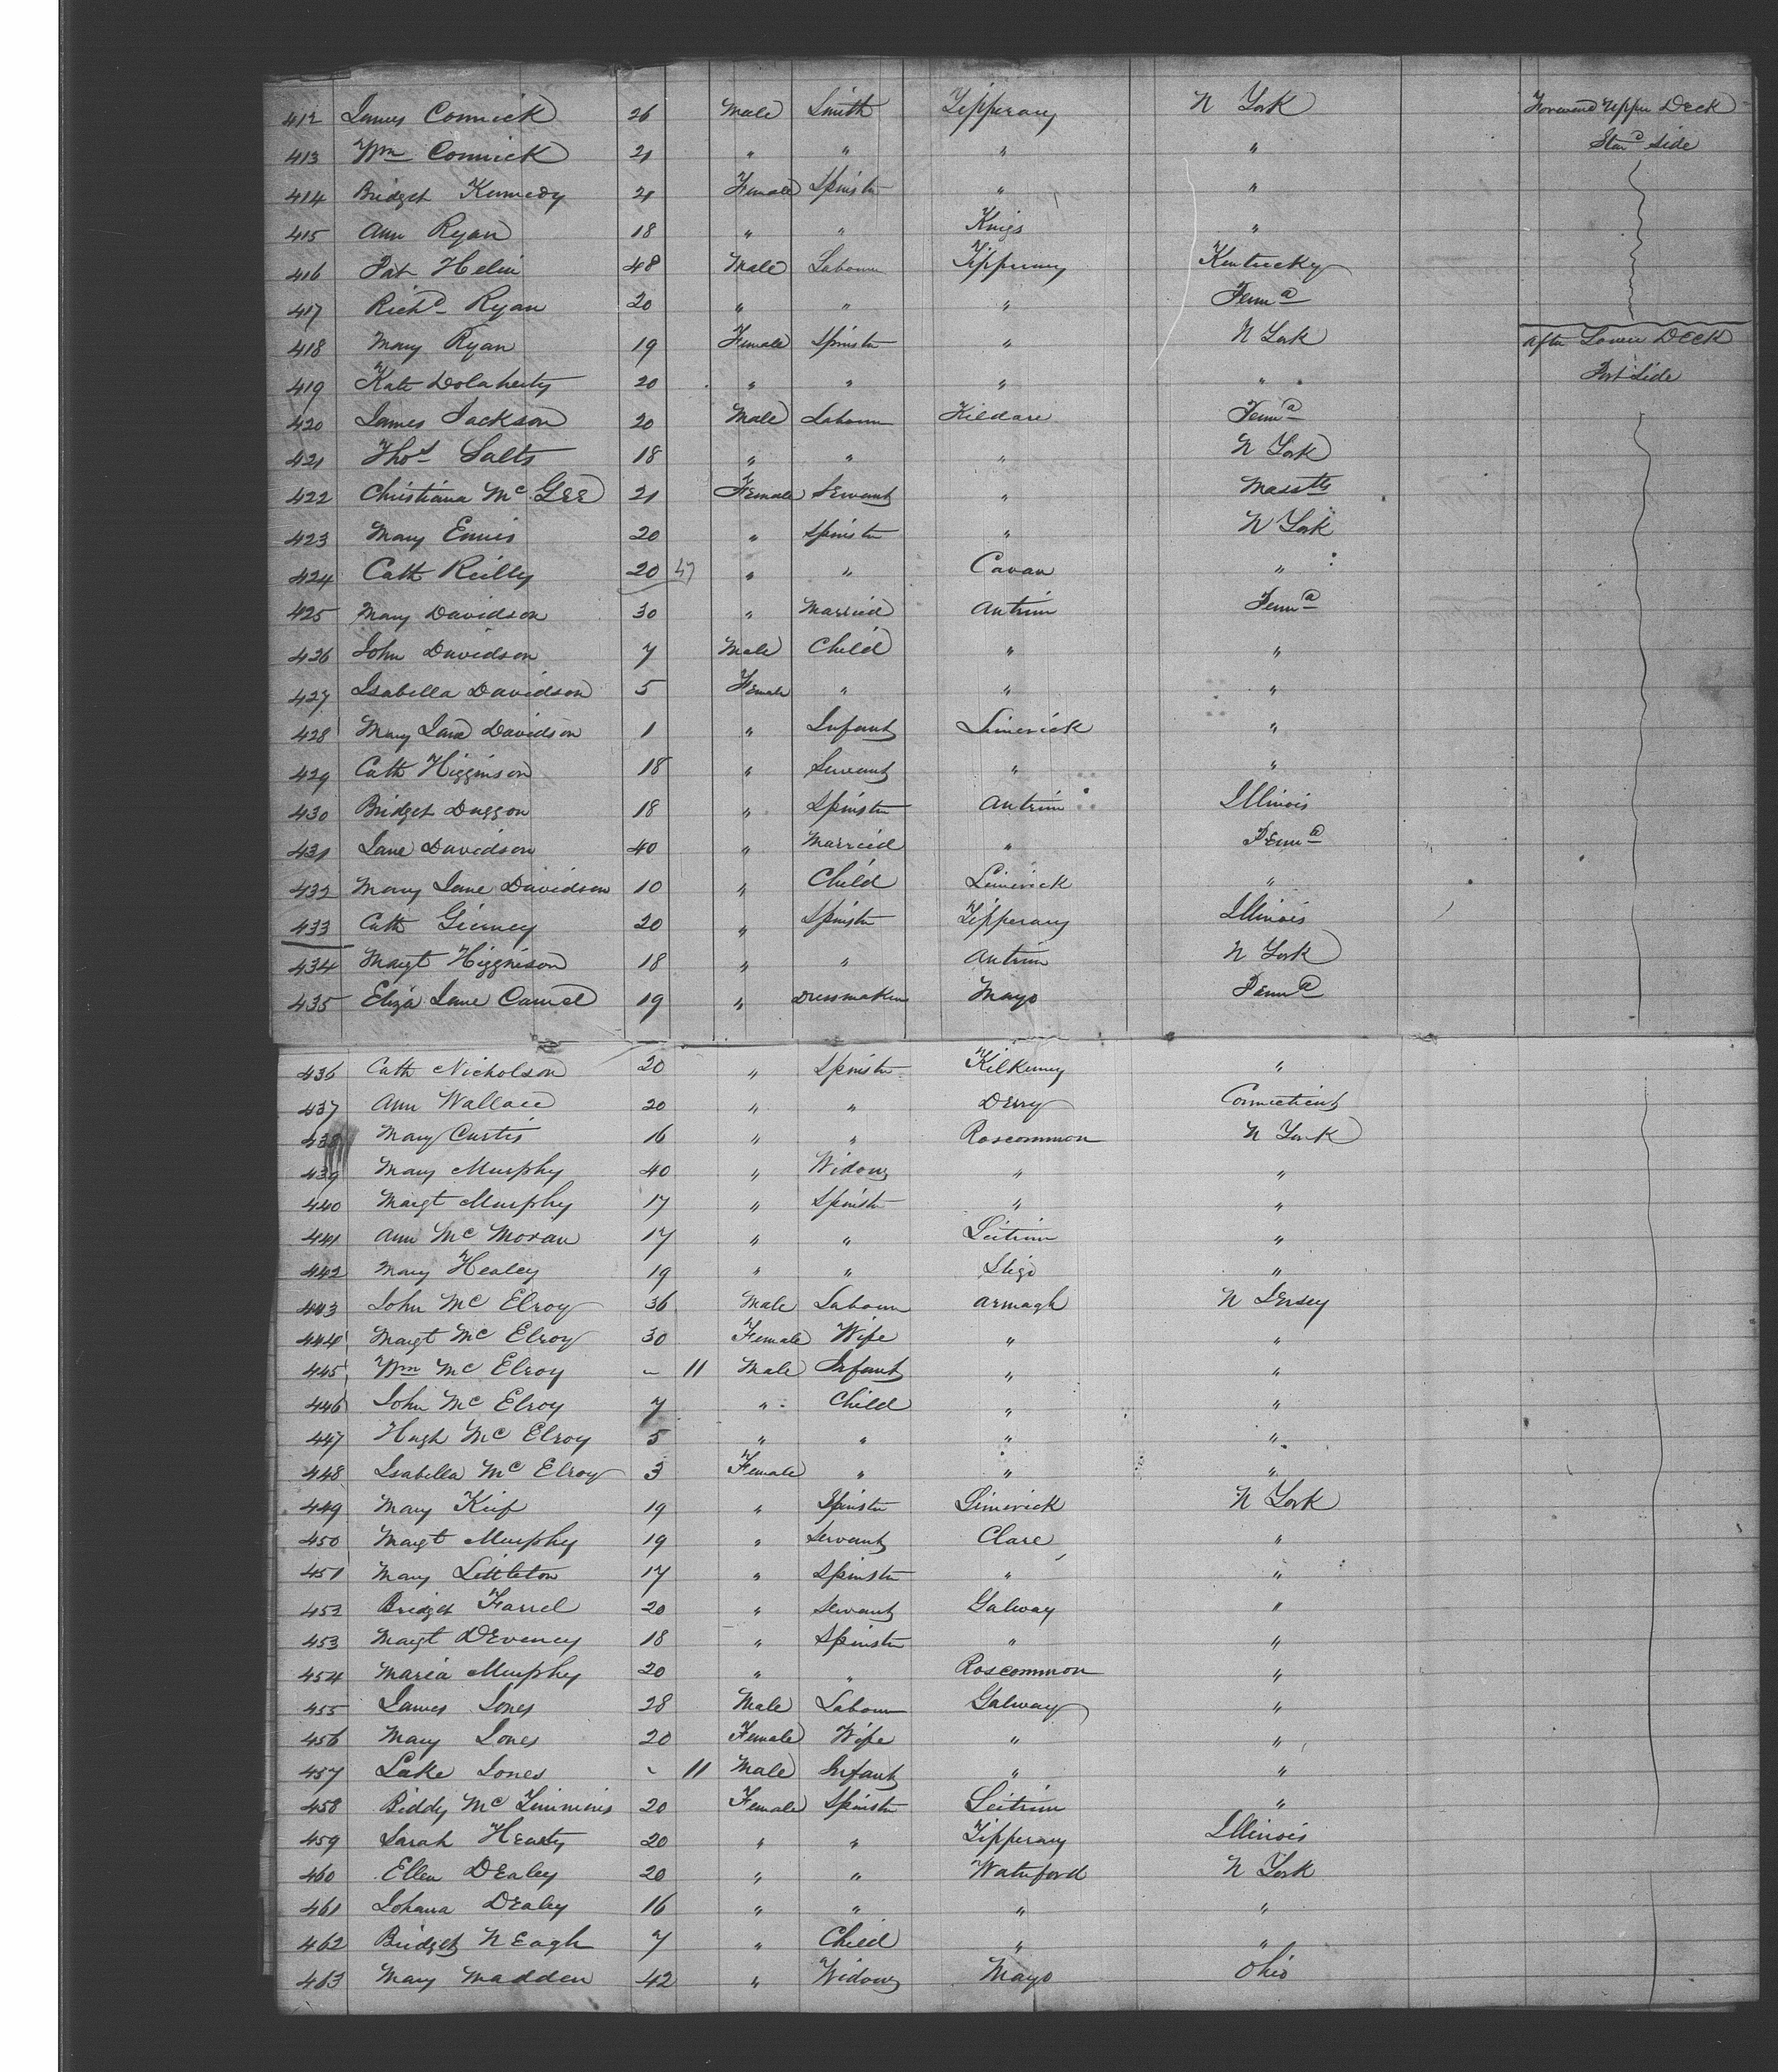 412 James Connick 26 Male Smith Tipperary N York Forward Upper Deck
413 Wm Connick 21 " " " " Star^d Side
414 Bridget Kennedy 21 Female Spinster " "
415 Ann Ryan 18 " " Kings "
416 Pat Helin 48 Male Labourer Tipperary Kentucky
417 Rich^d Ryan 20 " " " Penn^a
418 Mary Ryan 19 Female Spinster " N York After Lower Deck
419 Kate Dolaherty 20 " " " " " Port Side
420 James Jackson 20 Male Labourer Kildare Penn^a
421 Tho^s Salts 18 " " " N York
422 Christiana Mc Gee 21 Female Servant " Mass^tts
423 Mary Ennis 20 " Spinster " N York
424 Cath Reilly 20 47 " " Cavan "
425 Mary Davidson 30 " Married Antrim Penn^a
426 John Davidson 7 Male Child " "
427 Isabella Davidson 5 Female " " "
428 Mary Jane Davidson 1 " Infant Limerick "
429 Cath Higginson 18 " Servant " "
430 Bridget Duggon 18 " Spinster Antrim Illinois
431 Jane Davidson 40 " Married " Penn^a
432 Mary Jane Davidson 10 " Child Limerick "
433 Cath Gierney 20 " Spinster Tipperary Illinois
434 Margt Higginson 18 " " Antrim N York
435 Eliza Jane 19 " Dressmaker Mayo Penn^a
436 Cath Nicholson 20 " Spinster Kilkenny "
437 Ann Wallace 20 " " Derry Connecticut
438 Mary Curtis 16 " " Roscommon N York
439 Mary Murphy 40 " Widow " "
440 Margt Murphy 17 " Spinster " "
441 Ann Mc Moran 17 " " Leitrim "
442 Mary Healey 19 " " Sligo "
443 John Mc Elroy 36 Male Labourer Armagh N Jersey
444 Margt Mc Elroy 30 Female Wife " "
445 Wm Mc Elroy - 11 Male Infant " "
446 John Mc Elroy 7 " Child " "
447 Hugh Mc Elroy 5 " " " "
448 Isabella Mc Elroy 3 Female " " "
449 Mary Keif 19 " Spinster Limerick N York
450 Margt Murphy 19 " Servant Clare "
451 Mary Littleton 17 " Spinster " "
452 Bridget Farrel 20 " Servant Galway "
453 Margt Deveney 18 " Spinster " "
454 Maria Murphy 20 " " Roscommon "
455 James Jones 28 Male Labourer Galway "
456 Mary Jones 20 Female Wife " "
457 Luke Jones - 11 Male Infant " "
458 Biddy Mc Timmins 20 Female Spinster Leitrim "
459 Sarah Hearty 20 " " Tipperary Illinois
460 Ellen Dealey 20 " " Waterford N York
461 Johana Dealey 16 " " " "
462 Bridget Neagh 7 " Child " "
463 Mary Madden 42 " Widow Mayo Ohio